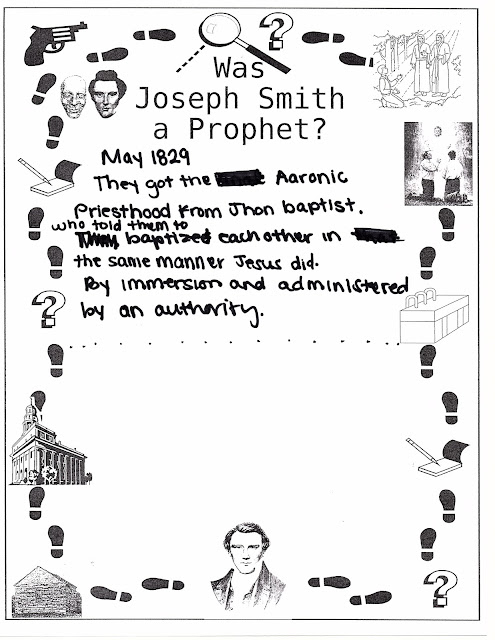 Was
Joseph Smith
a Prophet?
May 1829
They got the Aaronic
Priesthood from Jhon baptist.
who told them to
baptized each other in
the same manner Jesus did.
By immersion and administered
by an authority.